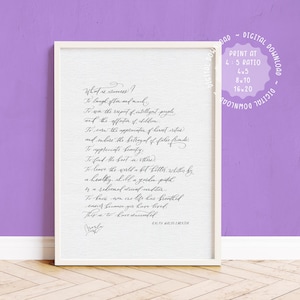 What is success?
To laugh often and much;
To win the respect of intelligent people
and the affection of children;
To earn the appreciation of honest critics
and endure the betrayal of false friends;
To appreciate beauty;
To find the best in others;
To leave the world a bit better, whether by
a healthy child, a garden patch
or a redeemed social condition;
To know even one life has breathed
easier because you have lived.
This is to have succeeded.
RALPH WALDO EMERSON
DIGITAL DOWNLOAD ~ DIGITAL DOWNLOAD ~
PRINT AT
4:5 RATIO
4x5
8x10
16x20